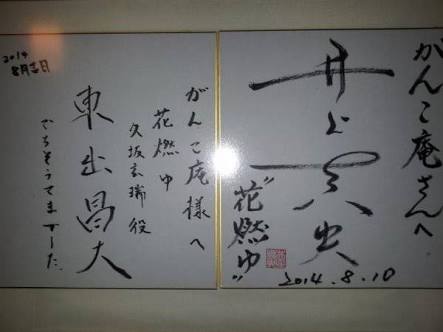 がんこ庵さんへ
井上真央
"花燃ゆ"
2014.8.10
がんこ庵様へ
花燃ゆ
久坂玄瑞役
東出昌大
ごちそうでま した。
2014